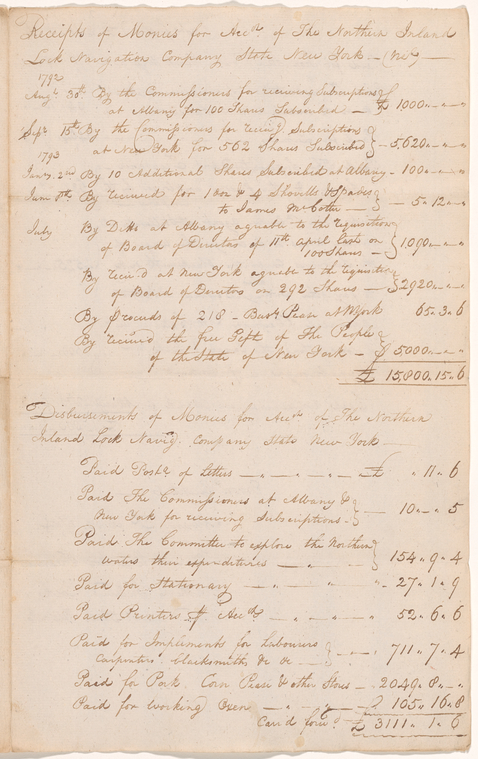 Receipts of Monies for Acct. of The Northern Inland
Lock Navigation Company State New York — (Viz) —
1792
Augt. 30th By the Commissioners for receiving Subscriptions
at Albany for 100 Shares Subscribed — £ 1000 " — " —
Sepr. 15th By the Commissioners for receivg. Subscriptions
at New York for 562 Shares Subscribed — 5,620 " — " —
1793
Jany. 2nd By 10 Additional Shares Subscribed at Albany - 100 " — " —
June 8th. By received for 1 Doz & 4 Shovells & Spades
to James McCotter — — 5 " 12 " —
July By Ditto at Albany agreable to the requisition
of Board of Directors of 11th April last on
100 Shares — 1000 " — " —
By receiv'd at New York agreable to the requisition
of Board of Directors on 292 Shares — £ 2920 " — " —
By proceeds of 218 - Bush. Pease at NYork 65 " 3 " 6
By receiv'd the free Gift of The People
of the State of New York — £ 5000 " — " —
£ 15,800 " 15 " 6
Disbursements of Monies for Acct. of The Northern
Inland Lock Navign. Company State New York —
Paid Poste. of Letters — " — " — " — £ " 11 " 6
Paid The Commissioners at Albany &
New York for receiving Subscriptions - — 10 " — " 5
Paid The Committee to explore the Northern
waters their expenditures — " — 154 " 9 " 4
Paid for Stationary — " — " — " - 27 " 1 " 9
Paid Printers pr. Acct. " — " — " 52 " 6 " 6
Paid for Implements for Labourers
Carpenters, Blacksmiths &c &c — — " — " 711 " 7 " 4
Paid for Pork, Corn Pease & other Stores — 2049 " 8 " —
Paid for Working Oxen — " — " — 105 " 16 " 8
Car'd forwd. £ 3111 " 1 " 6